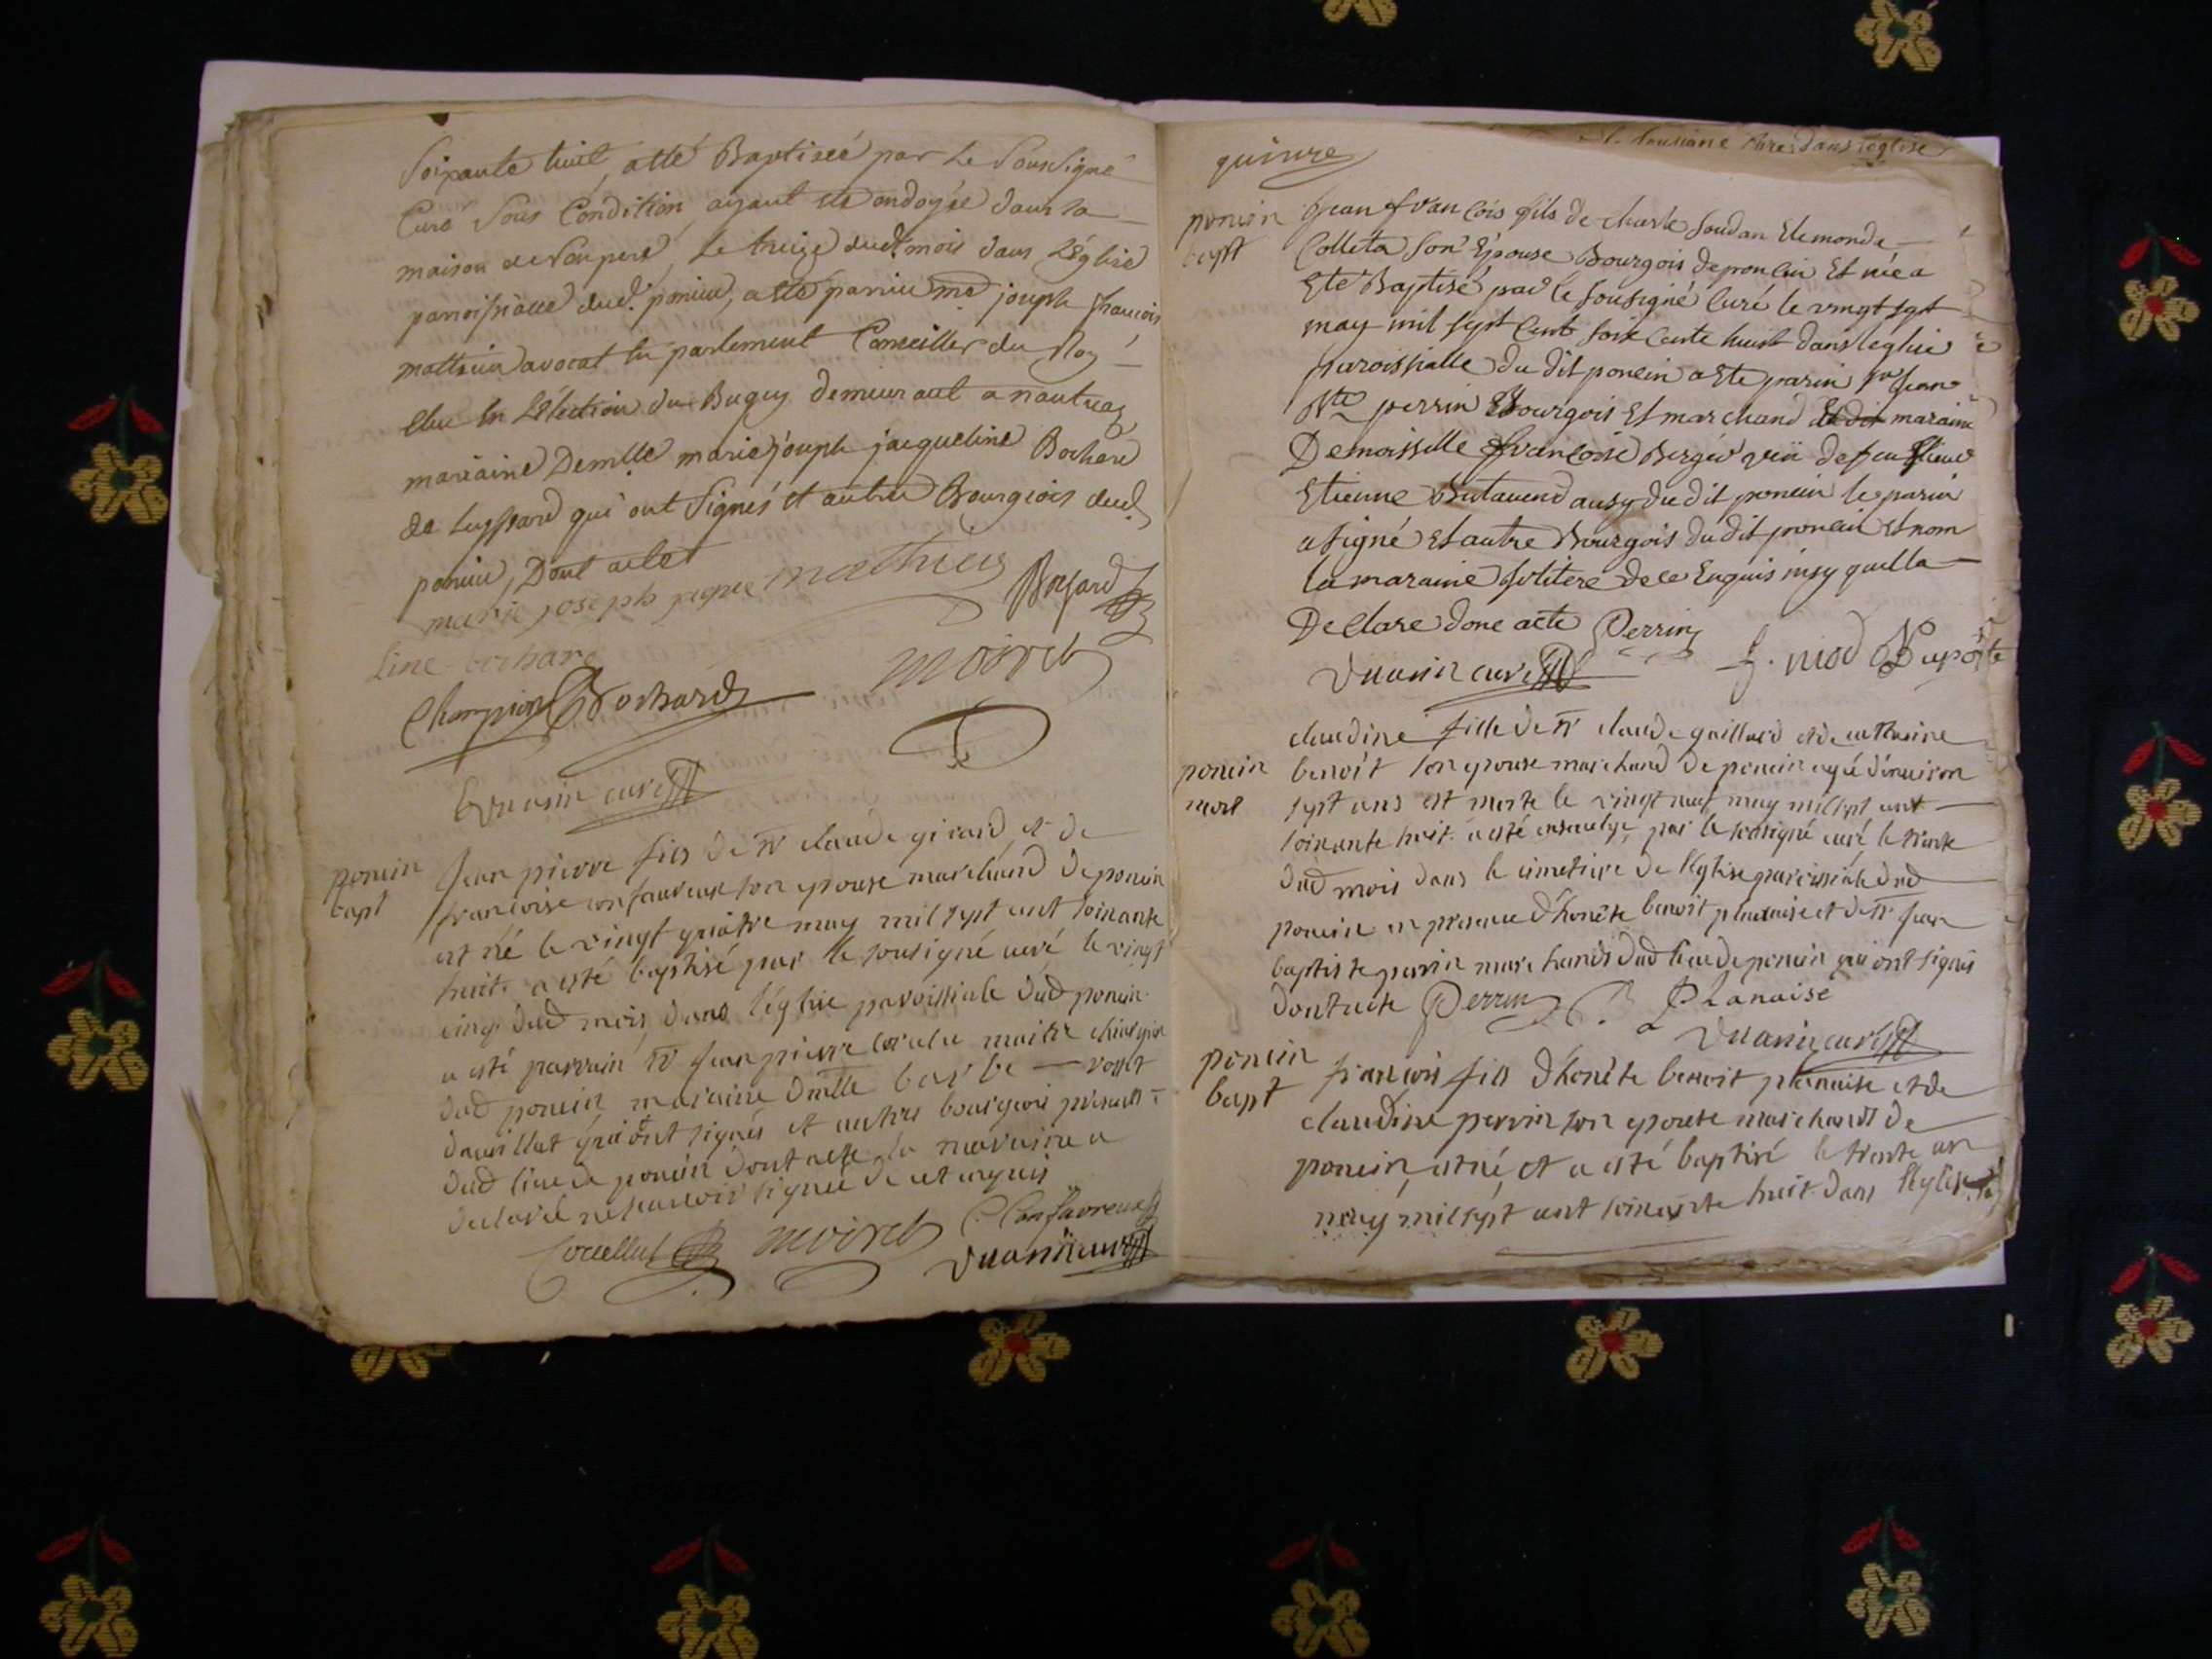 Soixante huit, a été Baptisée par le Soussigné
Curé Sous Condition, ayant été ondoyée dans la
maison de Son pere, le treize dud. mois dans L'église
paroissialle dud. poncin, a été parrin me joseph francois
mathieu avocat en parlement Conseiller du Roy
elu en L'élection du Bugey demeurant a nantua
maraine Demlle marie joseph jacqueline Bochard
de qui ont Signés et autre Bourgeois dud
poncin, Dont acte
marie joseph jaque mathieu
line bochard
Champion Bochard moiret
curé
poncin
bapt
Jean pierre fils de Sr claude girard et de
francoise confavreux son epouse marchand de poncin
est né le vingt quatre may mil sept cent soixante
huit a esté baptisé par le sousigné curé le vingt
cinq dud mois dans l'eglise paroissiale dud poncin
a esté parrain Sr Jean pierre maitre chirurgien
dud poncin maraine Dmlle barbe
qui ont signés et autres bourgeois presents
dud lieu de poncin dont acte la maraine a
declaré ne scavoir signer de ce enquis
moiret C. Confavreux
curé
quinze
dans l'eglise
poncin
bapt
Jean francois fils de charle soudan Clemonde
Colleta son Epouse Bourgois de poncin Et née a
Eté Baptisé par le sousigné curé le vingt sept
may mil sept cent soixante huit dans leglise
paroissialle du dit poncin a eté parin Sr Jean
Bte perrin Bourgois Et marchand Et dit maraine
Demoisselle francoise Berger de feu
Etienne ausy du dit poncin le parin
a signé Et autre Bourgois du dit poncin Et nom
la maraine de ce Enquis
Declare donc acte Perrin
curé Duporte
claudine fille de Sr claude gaillard et de catherine
poncin
mort
benoit son epouse marchand de poncin agé d'environ
sept ans est morte le vingt neuf may mil sept cent
soixante huit a esté ensevelye par le sousigné curé le trente
dud mois dans le cimetiere de l'Eglise paroissiale dud
poncin en presence d'honête benoit planaise et de Sr Jean
baptiste perrin marchands dud lieu de poncin qui ont signés
dont acte Perrin B. Planaise
curé
poncin
bapt
francois fils d'honête benoit planaise et de
claudine perrin son epouse marchands de
poncin, est né, et a esté baptisé le trente un
may mil sept cent soixante huit dans l'Eglise